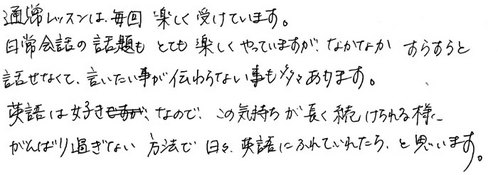 通常レッスンは、毎回 楽しく受けています。
日常会話の話題も とても 楽しくやっていますが、なかなか すらすらと
話せなくて、言いたい事が伝わらない事も多々あります。
英語は好きなので、この気持ちが長く続けられる様に
がんばり過ぎない 方法で 日々、英語にふれていれたら、と思います。